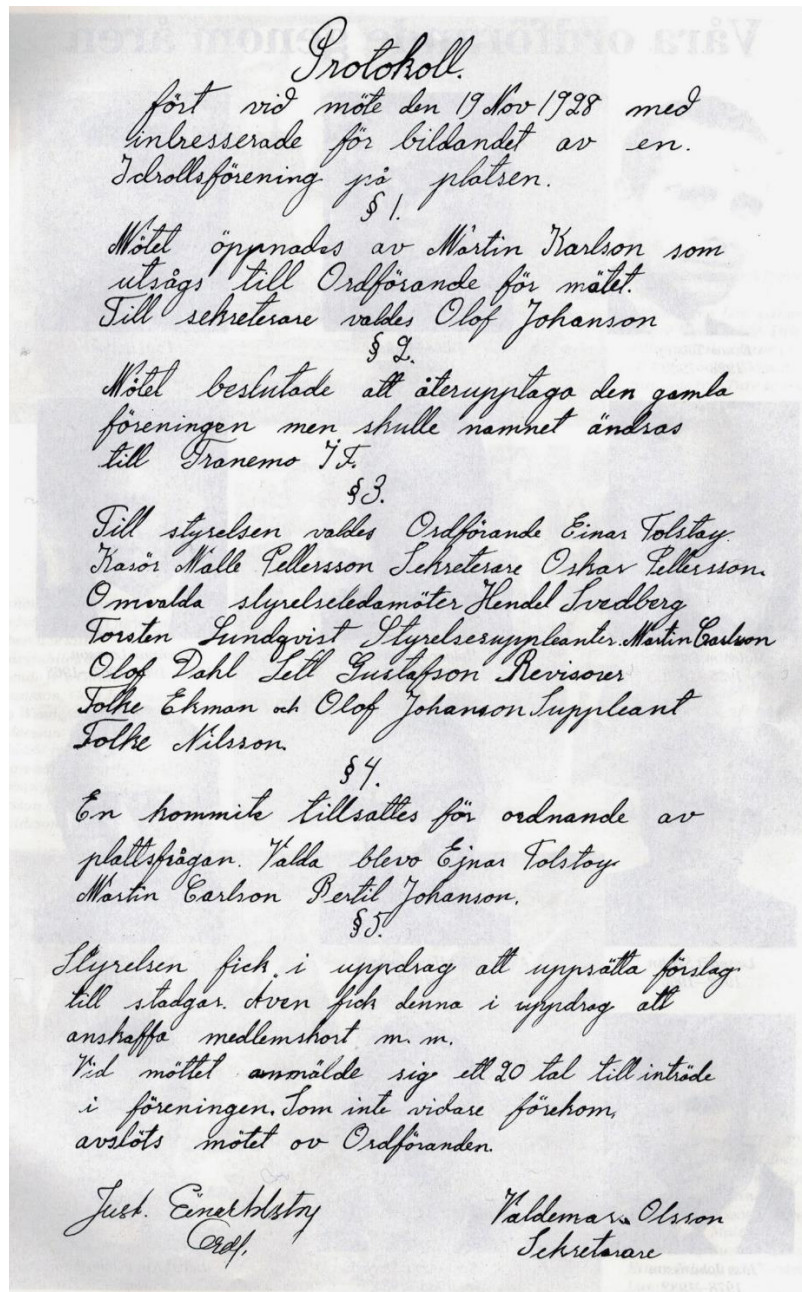 Protokoll.
fört vid möte den 19 Nov 1928 med
intresserade för bildandet av en.
Idrottsförening på platsen.
§ 1.
Mötet öppnades av Martin Karlson som
utsågs till Ordförande för mötet.
Till sekreterare valdes Olof Johanson
§ 2.
Mötet beslutade att återupptaga den gamla
föreningen men skulle namnet ändras
till Tranemo I.F.
§3.
Till styrelsen valdes Ordförande Einar Tolstoy.
Kasör Nalle Pettersson Sekreterare Oskar Pettersson.
Omvalda styrelseledamöter Hendel Svedberg
Torsten Lundqvist Styrelsesuppleanter. Martin Carlson
Olof Dahl Sett Gustafson Revisorer
Folke Ekman och Olof Johanson Suppleant
Folke Nilsson.
§4.
En kommite tillsattes för ordnande av
plattsfrågan. Valda blevo Ejnar Tolstoy
Martin Carlson Bertil Johanson.
§5.
Styrelsen fick i uppdrag att uppsätta förslag
till stadgar. Även fick denna i uppdrag att
anskaffa medlemskort m. m.
Vid möttet anmälde sig ett 20 tal till inträde
i föreningen. Som inte vidare förekom,
avslöts mötet av Ordföranden.
Just. Einar Tolstoy
Valdemar Olsson
Ordf.
Sekreterare
Våra ordförande genom åren